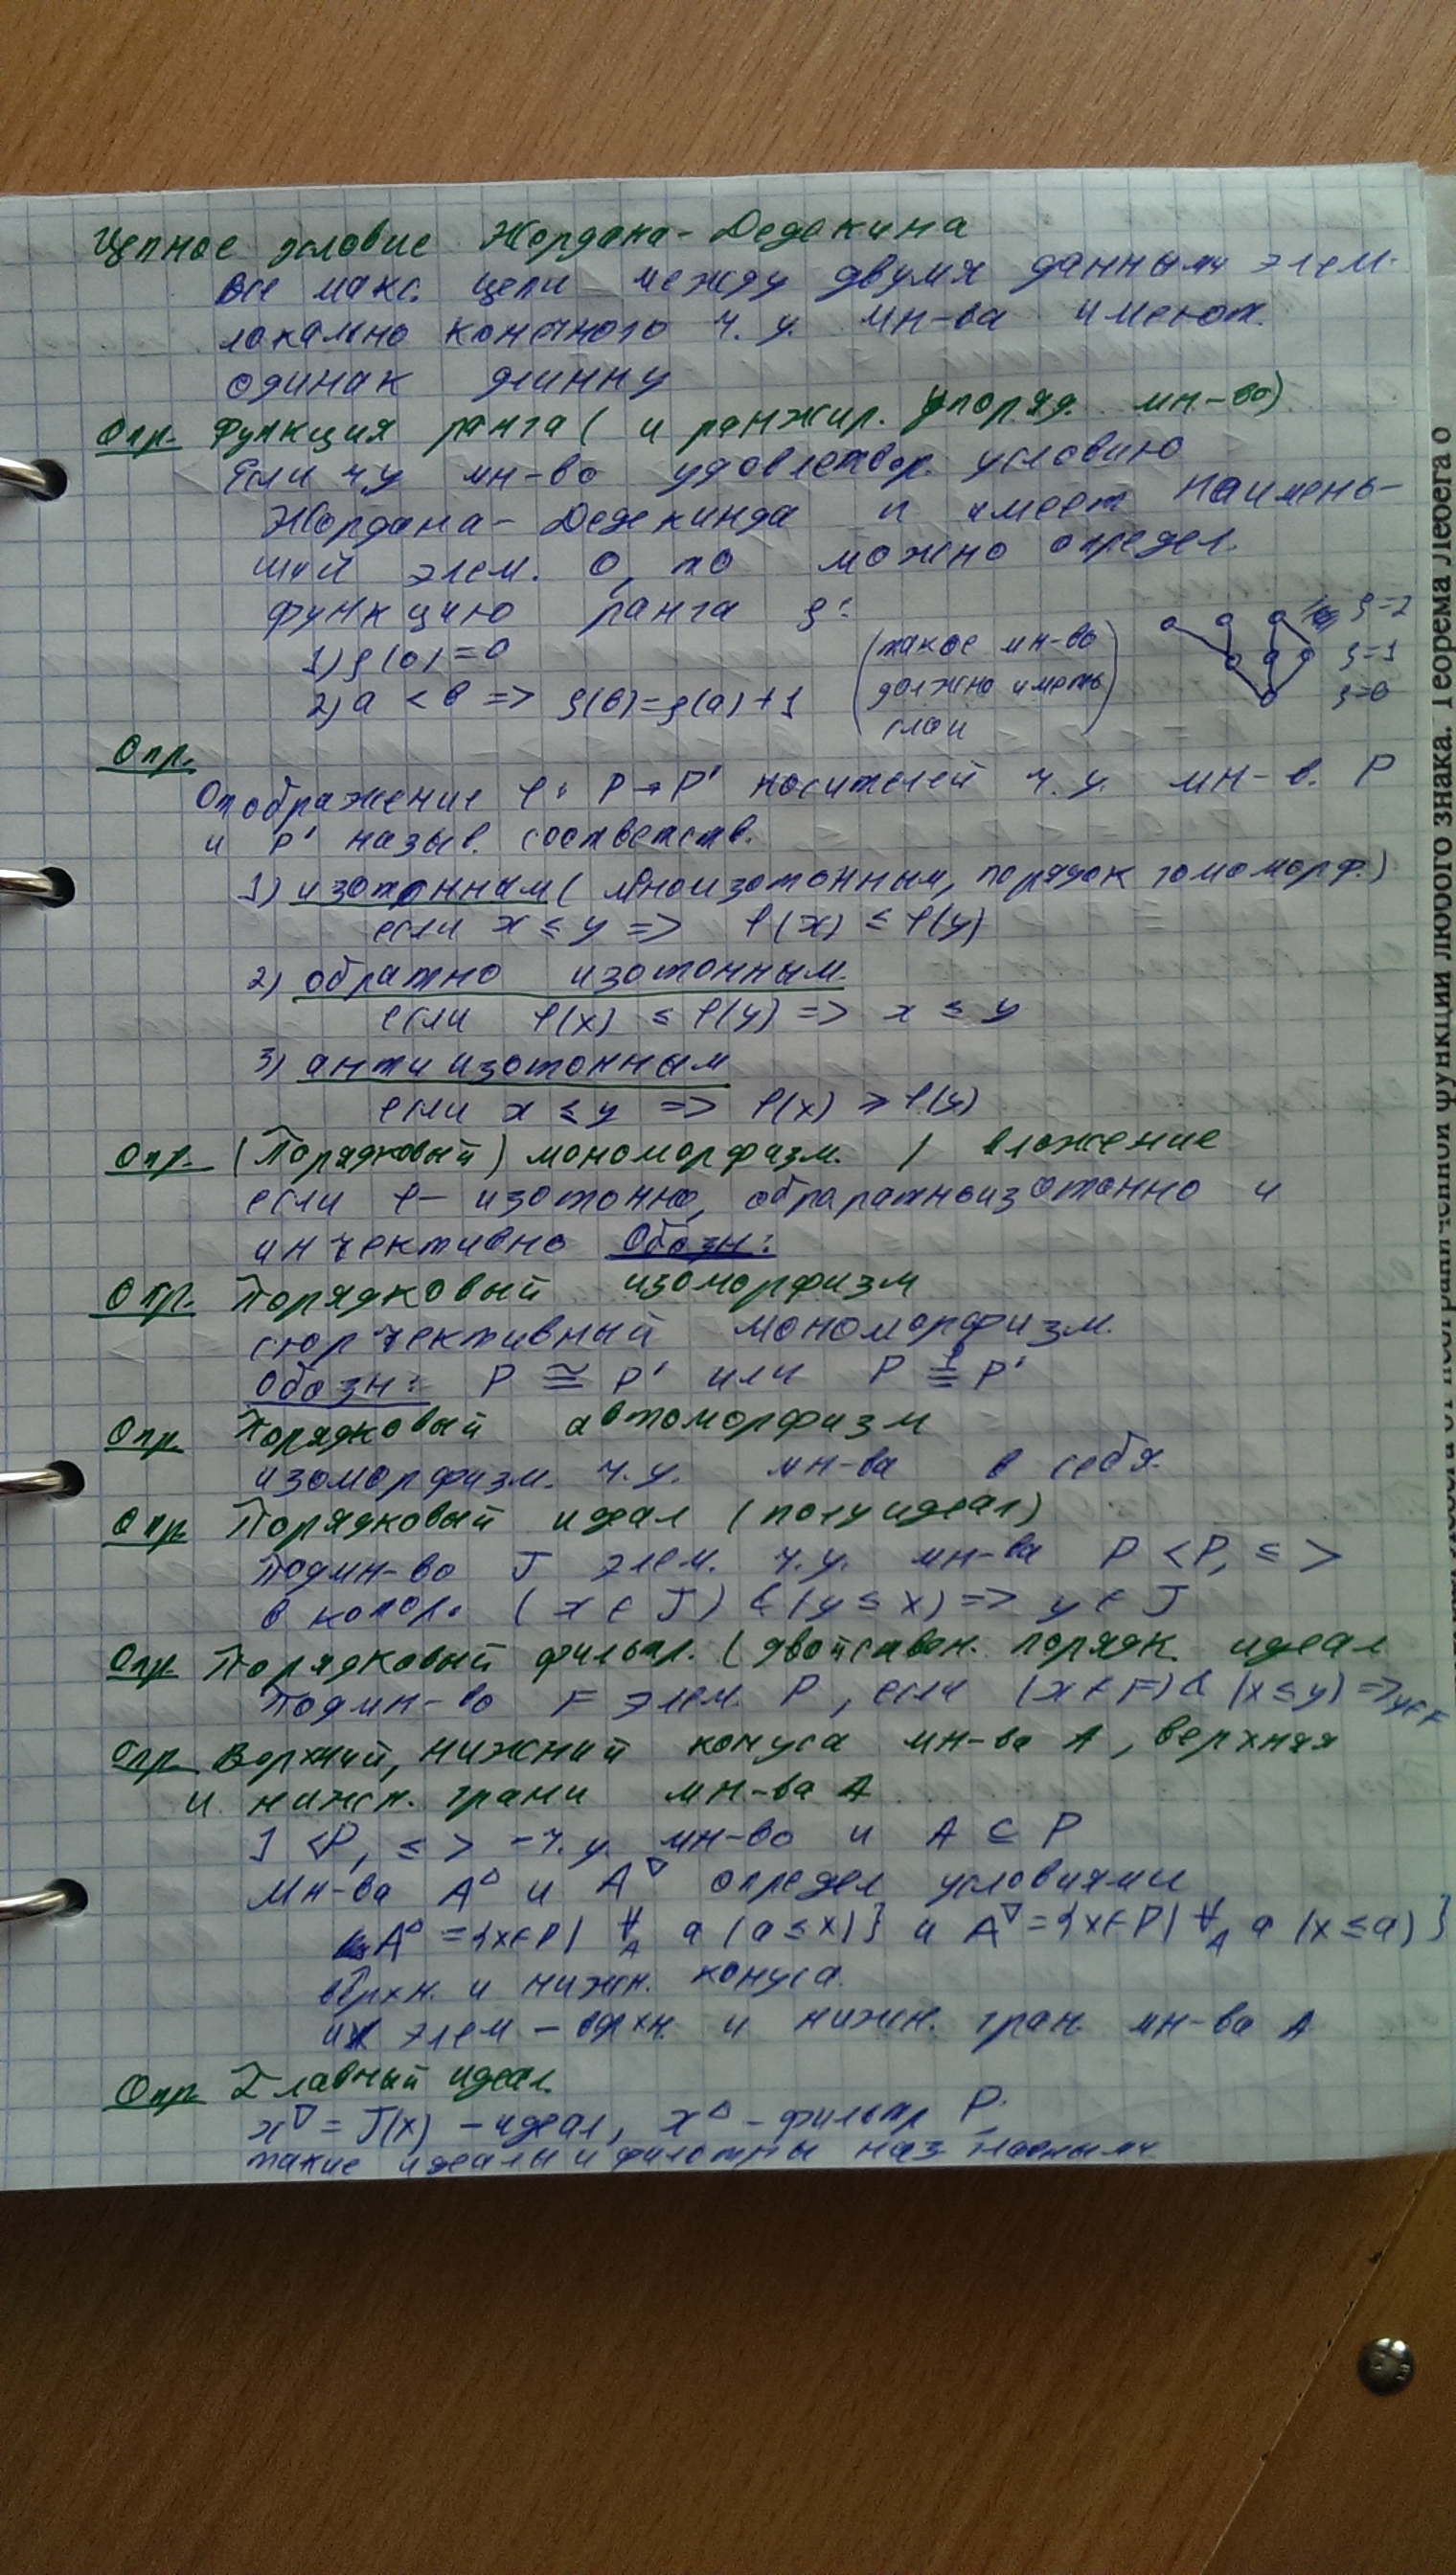 Цепное условие Жордана-Дедекина
Все макс. цепи между двумя данными элем.
локально конечного ч. у. мн-ва имеют
одинак длинну
Опр. Функция ранга ( и ранжир. упоряд. мн-во)
Если чу мн-во удовлетвор. условию
Жордана-Дедекинда и имеет наимень-
ший элем. 0, то можно определ.
функцию ранга ρ:
1) ρ(0)=0
2) a < b => ρ(b)=ρ(a)+1
(такое мн-во
должно иметь
слои)
ρ=2
ρ=1
ρ=0
Опр.
Отображение φ: P→P' носителей ч.у. мн-в. P
и P' назыв. соответств.
1) изотонным (моноизотонным, порядок гомоморф.)
если x ≤ y => φ(x) ≤ φ(y)
2) обратно изотонным.
если φ(x) ≤ φ(y) => x ≤ y
3) антиизотонным
если x ≤ y => φ(x) ≥ φ(y)
Опр. (Порядковый) мономорфизм. / вложение
если φ- изотонно, обраратноизотонно и
инъективно Обозн:
Опр. Порядковый изоморфизм
сюръективный мономорфизм.
Обозн: P ≅ P' или P ≅ P'
φ
Опр Порядковый автоморфизм
изоморфизм. ч.у. мн-ва в себя.
Опр Порядковый идеал (полуидеал)
Подмн-во J элем. ч.у. мн-ва P <P, ≤ >
в котор. (x ∈ J) & (y ≤ x) => y ∈ J
Опр Порядковый фильтр. (двойствен. порядк. идеал
Подмн-во F элем. P, если (x ∈ F) & (x ≤ y) => y ∈ F
Опр Верхний, нижний конуса мн-ва A, верхняя
и нижн. грани мн-ва A
] <P, ≤ > - ч.у. мн-во и A ⊆ P
Мн-ва A^△ и A^▽ определ условиями
A^△ ={x∈P| ∀_A a (a ≤ x)} и A^▽={x∈P| ∀_A a (x ≤ a)}
верхн. и нижн. конуса.
их элем - верхн. и нижн. гран. мн-ва A
Опр Главный идеал.
x^▽ = J(x) - идеал, x^△ - фильтр P.
такие идеалы и фильтры наз главными
Теорема Лебега о
функции любого знака.